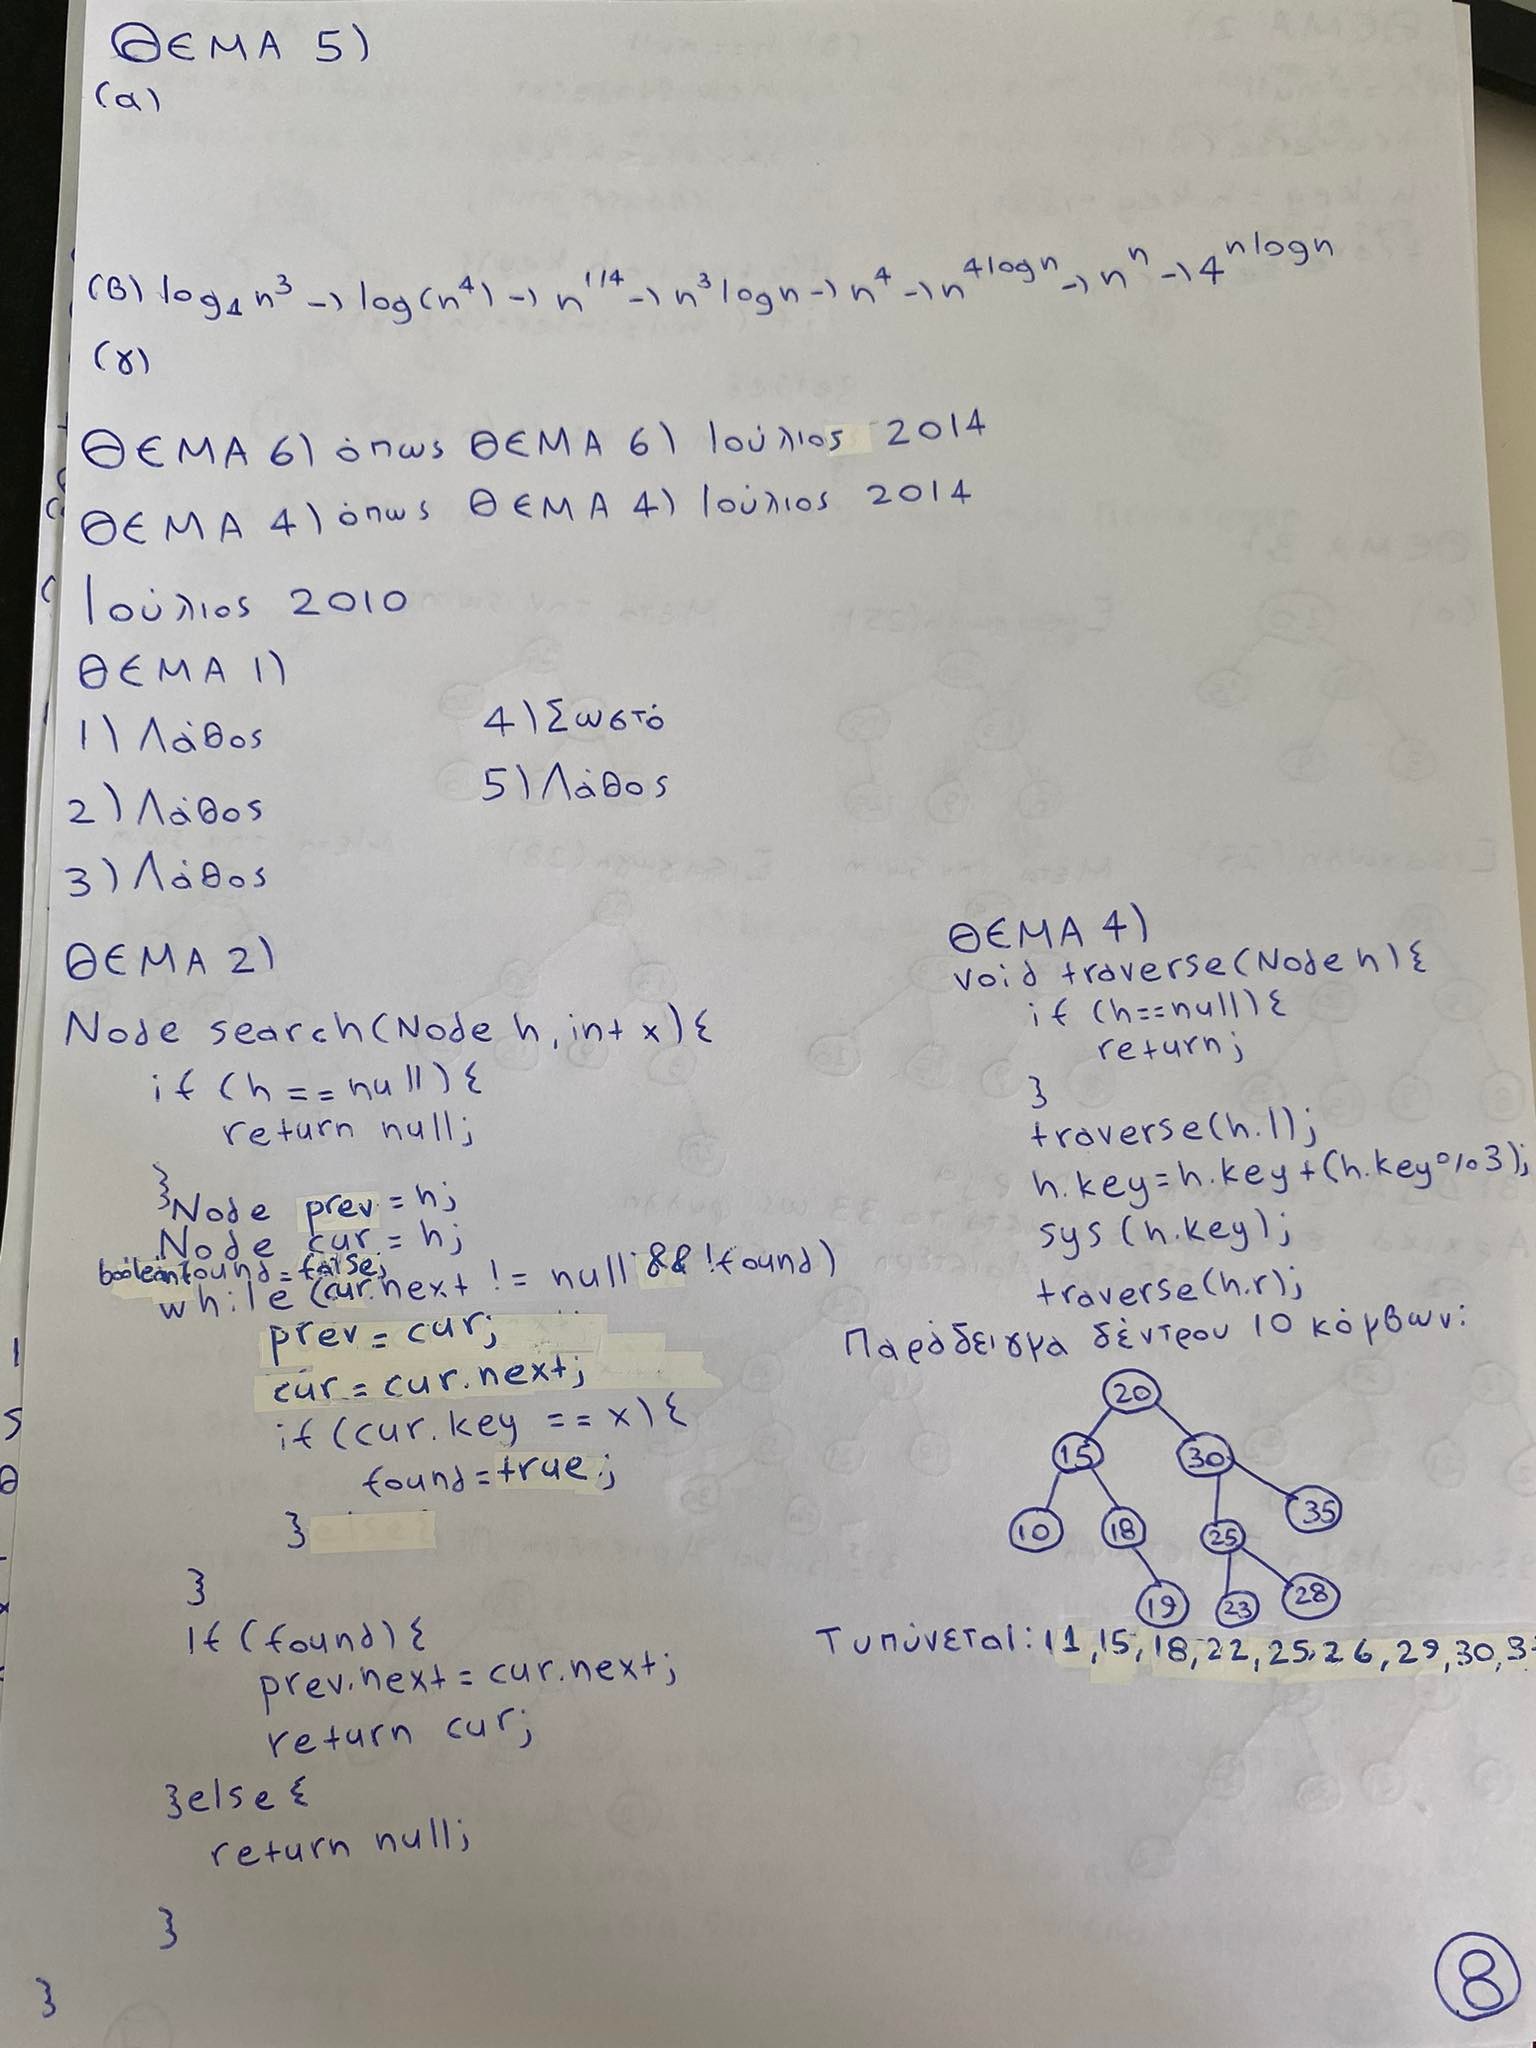 ΘΕΜΑ 5)
(α)
(β) log₄n³ → log(n⁴) → n^1/4 → n³logn → n⁴ → n^4logn → nⁿ → 4^nlogn
(γ)
ΘΕΜΑ 6) όπως ΘΕΜΑ 6) Ιούλιος 2014
ΘΕΜΑ 4) όπως ΘΕΜΑ 4) Ιούλιος 2014
Ιούλιος 2010
ΘΕΜΑ 1)
1) Λάθος
2) Λάθος
3) Λάθος
4) Σωστό
5) Λάθος
ΘΕΜΑ 2)
Node search(Node h, int x){
if (h == null){
return null;
}
Node prev = h;
Node cur = h;
boolean found = false;
while (cur.next != null && !found)
prev = cur;
cur = cur.next;
if (cur.key == x){
found = true;
}
}
if (found){
prev.next = cur.next;
return cur;
}else{
return null;
}
}
ΘΕΜΑ 4)
void traverse(Node h){
if (h==null){
return;
}
traverse(h.l);
h.key=h.key+(h.key%3);
sys(h.key);
traverse(h.r);
Παράδειγμα δέντρου 10 κόμβων:
20
15 30
10 18 25 35
19 23 28
Τυπώνεται: 11,15,18,22,25,26,29,30,3
8